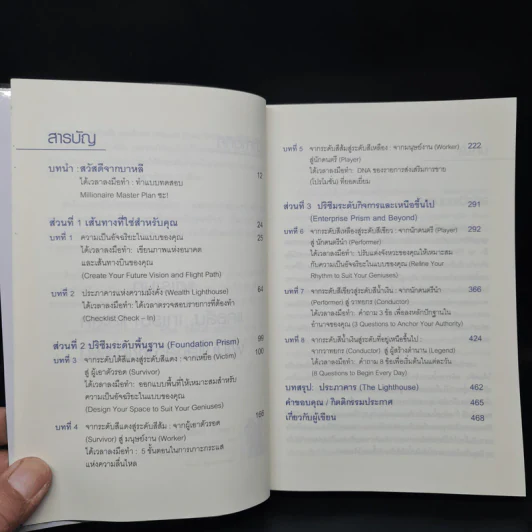 สารบัญ
บทนำ : สวัสดีจากบาหลี 12
ได้เวลาลงมือทำ : ทำแบบทดสอบ
Millionaire Master Plan ซะ!
ส่วนที่ 1 เส้นทางที่ใช่สำหรับคุณ 24
บทที่ 1 ความเป็นอัจฉริยะในแบบของคุณ 25
ได้เวลาลงมือทำ: เขียนภาพแห่งอนาคต
และเส้นทางบินของคุณ
(Create Your Future Vision and Flight Path)
บทที่ 2 ประภาคารแห่งความมั่งคั่ง (Wealth Lighthouse) 64
ได้เวลาลงมือทำ: ได้เวลาตรวจสอบรายการที่ต้องทำ
(Checklist Check - In)
ส่วนที่ 2 ปริซึมระดับพื้นฐาน (Foundation Prism) 99
บทที่ 3 จากระดับใต้สีแดงสู่ระดับสีแดง : จากเหยื่อ (Victim) 100
สู่ ผู้เอาตัวรอด (Survivor)
ได้เวลาลงมือทำ: ออกแบบพื้นที่ให้เหมาะสมสำหรับ
ความเป็นอัจฉริยะของคุณ
(Design Your Space to Suit Your Geniuses)
บทที่ 4 จากระดับสีแดงสู่ระดับสีส้ม : จากผู้เอาตัวรอด 166
(Survivor) สู่ มนุษย์งาน (Worker)
ได้เวลาลงมือทำ : 5 ขั้นตอนในการเกาะกระแส
แห่งความลื่นไหล
บทที่ 5 จากระดับสีส้มสู่ระดับสีเหลือง : จากมนุษย์งาน (Worker) 222
สู่นักดนตรี (Player)
ได้เวลาลงมือทำ: DNA ของรายการส่งเสริมการขาย
(โปรโมชัน) ที่ยอดเยี่ยม
ส่วนที่ 3 ปริซึมระดับกิจการและเหนือขึ้นไป 291
(Enterprise Prism and Beyond)
บทที่ 6 จากระดับสีเหลืองสู่ระดับสีเขียว : จากนักดนตรี (Player) 292
สู่ นักดนตรีนำ (Performer)
ได้เวลาลงมือทำ: ปรับแต่งจังหวะของคุณให้เหมาะสม
กับความเป็นอัจฉริยะในแบบของคุณ (Refine Your
Rhythm to Suit Your Geniuses)
บทที่ 7 จากระดับสีเขียวสู่ระดับสีน้ำเงิน : จากนักดนตรีนำ 366
(Performer) สู่ วาทยกร (Conductor)
ได้เวลาลงมือทำ: คำถาม 3 ข้อ เพื่อลงหลักปักฐานใน
อำนาจของคุณ (3 Questions to Anchor Your Authority)
บทที่ 8 จากระดับสีน้ำเงินสู่ระดับที่อยู่เหนือขึ้นไป : 424
จากวาทยกร (Conductor) สู่ ผู้สร้างตำนาน (Legend)
ได้เวลาลงมือทำ: คำถาม 8 ข้อเพื่อเริ่มต้นในแต่ละวัน
(8 Questions to Begin Every Day)
บทสรุป: ประภาคาร (The Lighthouse) 462
คำขอบคุณ / กิตติกรรมประกาศ 465
เกี่ยวกับผู้เขียน 468